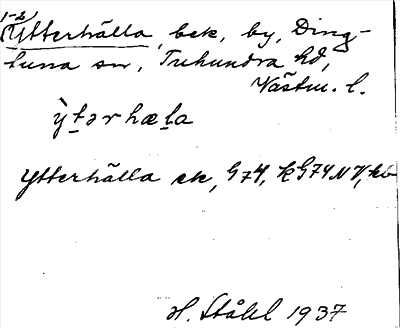 1-2
Ytterhälla, bek, by, Ding-
tuna sn, Tuhundra hd,
Västm. l.
ỳtərhæla
Ytterhälla ek, G74, kG74NV, kb
H. Ståhl 1937